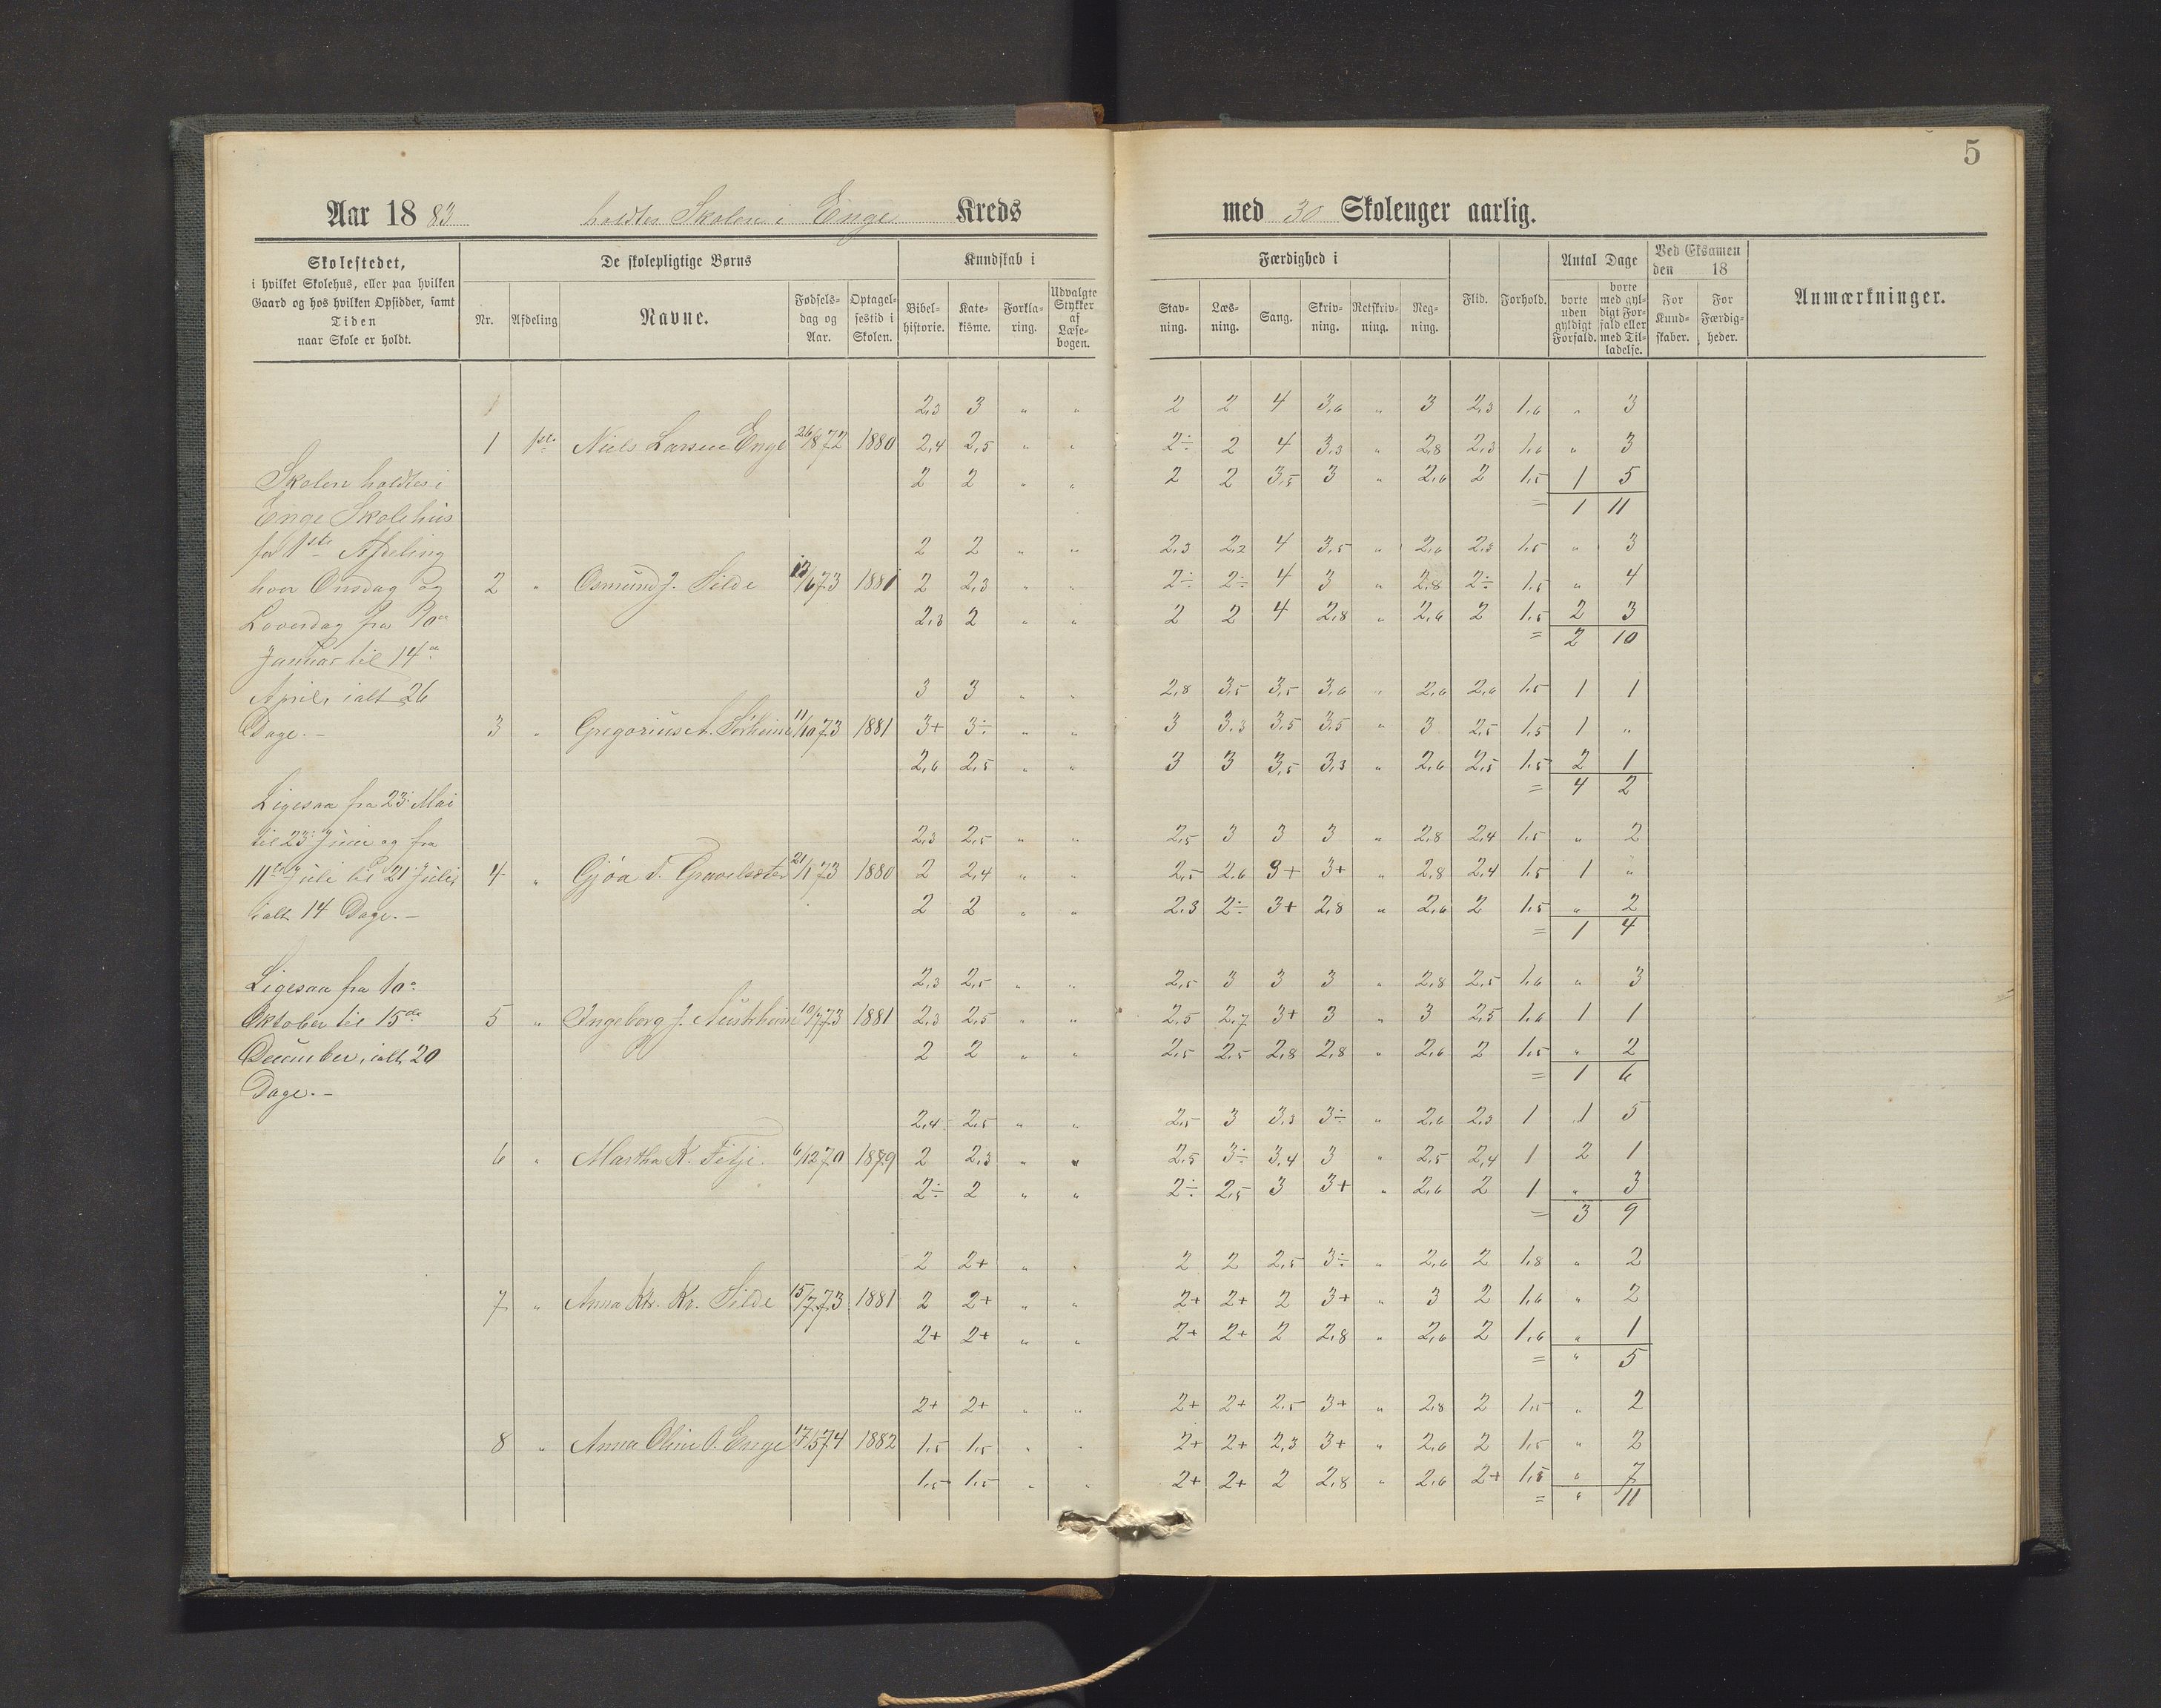 5
Aar 18 83 holdtes Skolen i Enge Kreds med 30 Skoleuger aarlig.
Skolestedet,
i hvilket Skolehus, eller paa hvilken
Gaard og hos hvilken Opsidder, samt
Tiden
naar Skole er holdt.
De skolepligtige Børns
Nr. Afdeling Navne. Fødselsdag og Aar. Optagelsestid i Skolen.
Kundskab i
Bibelhistorie. Katekisme. Forklaring. Udvalgte Stykker af Læsebogen.
Færdighed i
Stavning. Læsning. Sang. Skrivning. Retskrivning. Regning.
Flid. Forhold.
Antal Dage
borte uden gyldigt Forfald. borte med gyldigt Forfald eller med Tilladelse.
Ved Eksamen den 18
For Kundskaber. For Færdigheder.
Anmærkninger.
Skolen holdtes i
Enge Skolehus
for 1ste Afdeling
hver Onsdag og
Løverdag fra 10de
Januar til 14de
April, ialt 26
Dage. -
Ligesaa fra 23. Mai
til 23. Juni og fra
11te Juli til 21. Juli,
ialt 14 Dage. -
Ligesaa fra 10.
Oktober til 15de
December, ialt 20
Dage. -
2,3 3 " " 2 2 4 3,6 " 3 2,3 1,6 " 3
1 1ste Niels Larsen Enge 26/8 72 1880 2,4 2,5 " " 2÷ 2 4 3,3 " 2,8 2,3 1,6 " 3
2 2 " " 2 2 3,5 3 " 2,6 2 1,5 1 5
= 1 11
2 2 " " 2,3 2,2 4 3,5 " 2,6 2,3 1,5 " 3
2 " Osmund J. Silde 13/6 73 1881 2 2,3 " " 2÷ 2÷ 4 3 " 2,8 2÷ 1,5 " 4
2,3 2 " " 2 2 4 2,8 " 2,6 2 1,5 2 3
= 2 10
3 3 " " 2,8 3,5 3,5 3,6 " 2,6 2,6 1,5 1 1
3 " Gregorius A. Sørheim 11/10 73 1881 3+ 3÷ " " 3 3,3 3,5 3,5 " 3 2,5 1,5 1 "
2,6 2,5 " " 3 3 3,5 3,3 " 2,6 2,5 1,5 2 1
= 4 2
2,3 2,5 " " 2,5 3 3 3 " 2,8 2,4 1,5 " 2
4 " Gjøa T. 21/1 73 1880 2 2,4 " " 2,5 2,6 3+ 3+ " 2,8 2,4 1,5 1 "
2 2 " " 2,3 2÷ 3+ 2,8 " 2,6 2 1,5 " 2
= 1 4
2,3 2,5 " " 2,5 3 3 3 " 2,8 2,5 1,6 " 3
5 " Ingeborg J. 10/7 73 1881 2,3 2,5 " " 2,5 2,7 3+ 3 " 3 2,5 1,6 1 1
2 2 " " 2,5 2,5 2,8 2,8 " 2,6 2 1,5 " 2
= 1 6
2,4 2,5 " " 2,5 3 3,3 3÷ " 2,6 2,3 1 1 5
6 " Martha K. Fitje. 6/12 70 1879 2 2,3 " " 2,5 3÷ 3,4 3 " 2,5 2,4 1 2 1
2÷ 2 " " 2÷ 2,5 3 3+ " 2,6 2 1 " 3
= 3 9
2 2+ " " 2 2 2,5 3÷ " 2,6 2 1,8 " 2
7 " Anna Kr. Silde 15/7 73 1881 2 2+ " " 2+ 2+ 2 3+ " 3 2 1,6 " 2
2+ 2+ " " 2+ 2+ 2 2,8 " 2,6 2 1,6 " 1
= " 5
2+ 2+ " " 2+ 2+ 2,5 3+ " 2,8 2 1,5 " 2
8 " Anna Oline O. Enge 17/5 74 1882 1,5 1,5 " " 2+ 2+ 2,3 3+ " 2,6 2 1,5 " 2
1,5 1,5 " " 2+ 2+ 2 2,8 " 2,6 2+ 1,5 " 7
= " 11